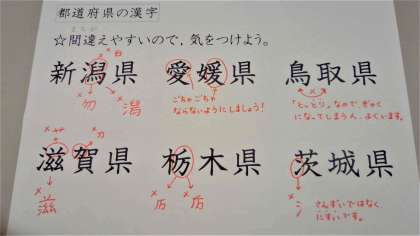 都道府県の漢字
まちが
☆間違えやすいので,気をつけよう。
新潟県 愛媛県 鳥取県
×白
×
勿 潟
ごちゃごちゃ
ならないようにしましょう!
「とっとり」なので、ぎゃく
になってしまう人、よくいます。
滋賀県 栃木県 茨城県
×艹 ×カ
× × × ×
滋 历 历 シ
さんずいではなく
にすいです。